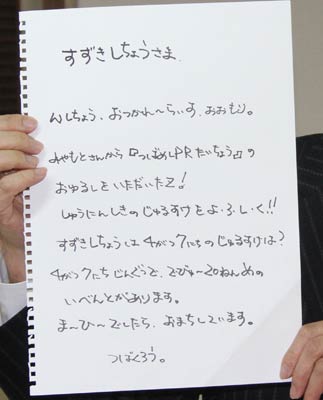 すずきしちょうさま
んしちょう、おつかれ〜らいす、おおもり。
みやもとさんから『つばめしPRたいちょう』の
おゆるしをいただいたZ!
しゅうにんしきのじゅるすけをよ・ろ・し・く!!
すずきしちょうは4がつ7にちのじゅるすけは?
4がつ7にちじんぐうで、でびゅ〜20ねんめの
いべんとがあります。
ま〜ひ〜でしたら、おまちしています。
つばくろう。